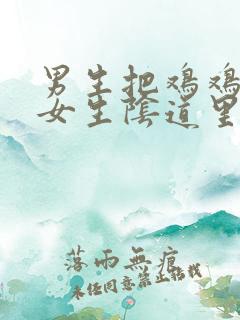 男生把鸡鸡
女生陰道里
落雨無痕
未经同意禁止转载